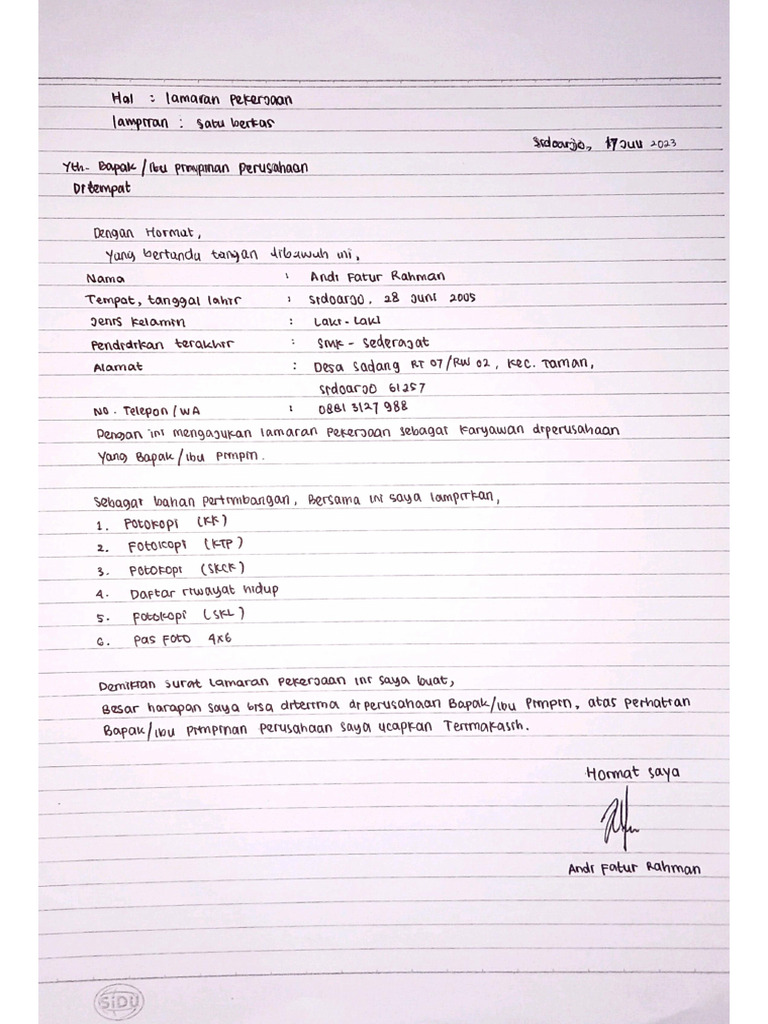 Hal : lamaran pekerjaan
lampiran : satu berkas
Sidoarjo, 17 Juli 2023
Yth. Bapak/ibu pimpinan perusahaan
Ditempat
Dengan Hormat,
Yang bertandu tangan dibawuh ini,
Nama : Andi Fatur Rahman
Tempat, tanggal lahir : Sidoarjo, 28 Juni 2005
Jenis kelamin : Laki-Laki
Pendidikan terakhir : SMK - Sederajat
Alamat : Desa Sadang RT 07/RW 02, Kec. Taman,
Sidoarjo 61257
No. Telepon/WA : 0881 3127 988
Dengan ini mengajukan lamaran pekerjaan sebagai karyawan diperusahaan
Yang Bapak/ibu Pimpin.
Sebagai bahan pertimbangan, Bersama ini saya lampirkan,
1. Potokopi (KK)
2. Fotokopi (KTP)
3. Potokopi (SKCK)
4. Daftar riwayat hidup
5. Fotokopi (SKL)
6. Pas Foto 4x6
Demikian surat lamaran pekerjaan ini saya buat,
Besar harapan saya bisa diterima diperusahaan Bapak/ibu Pimpin, atas perhatian
Bapak/ibu pimpinan perusahaan saya ucapkan Terimakasih.
Hormat saya
Andi Fatur Rahman
SIDU